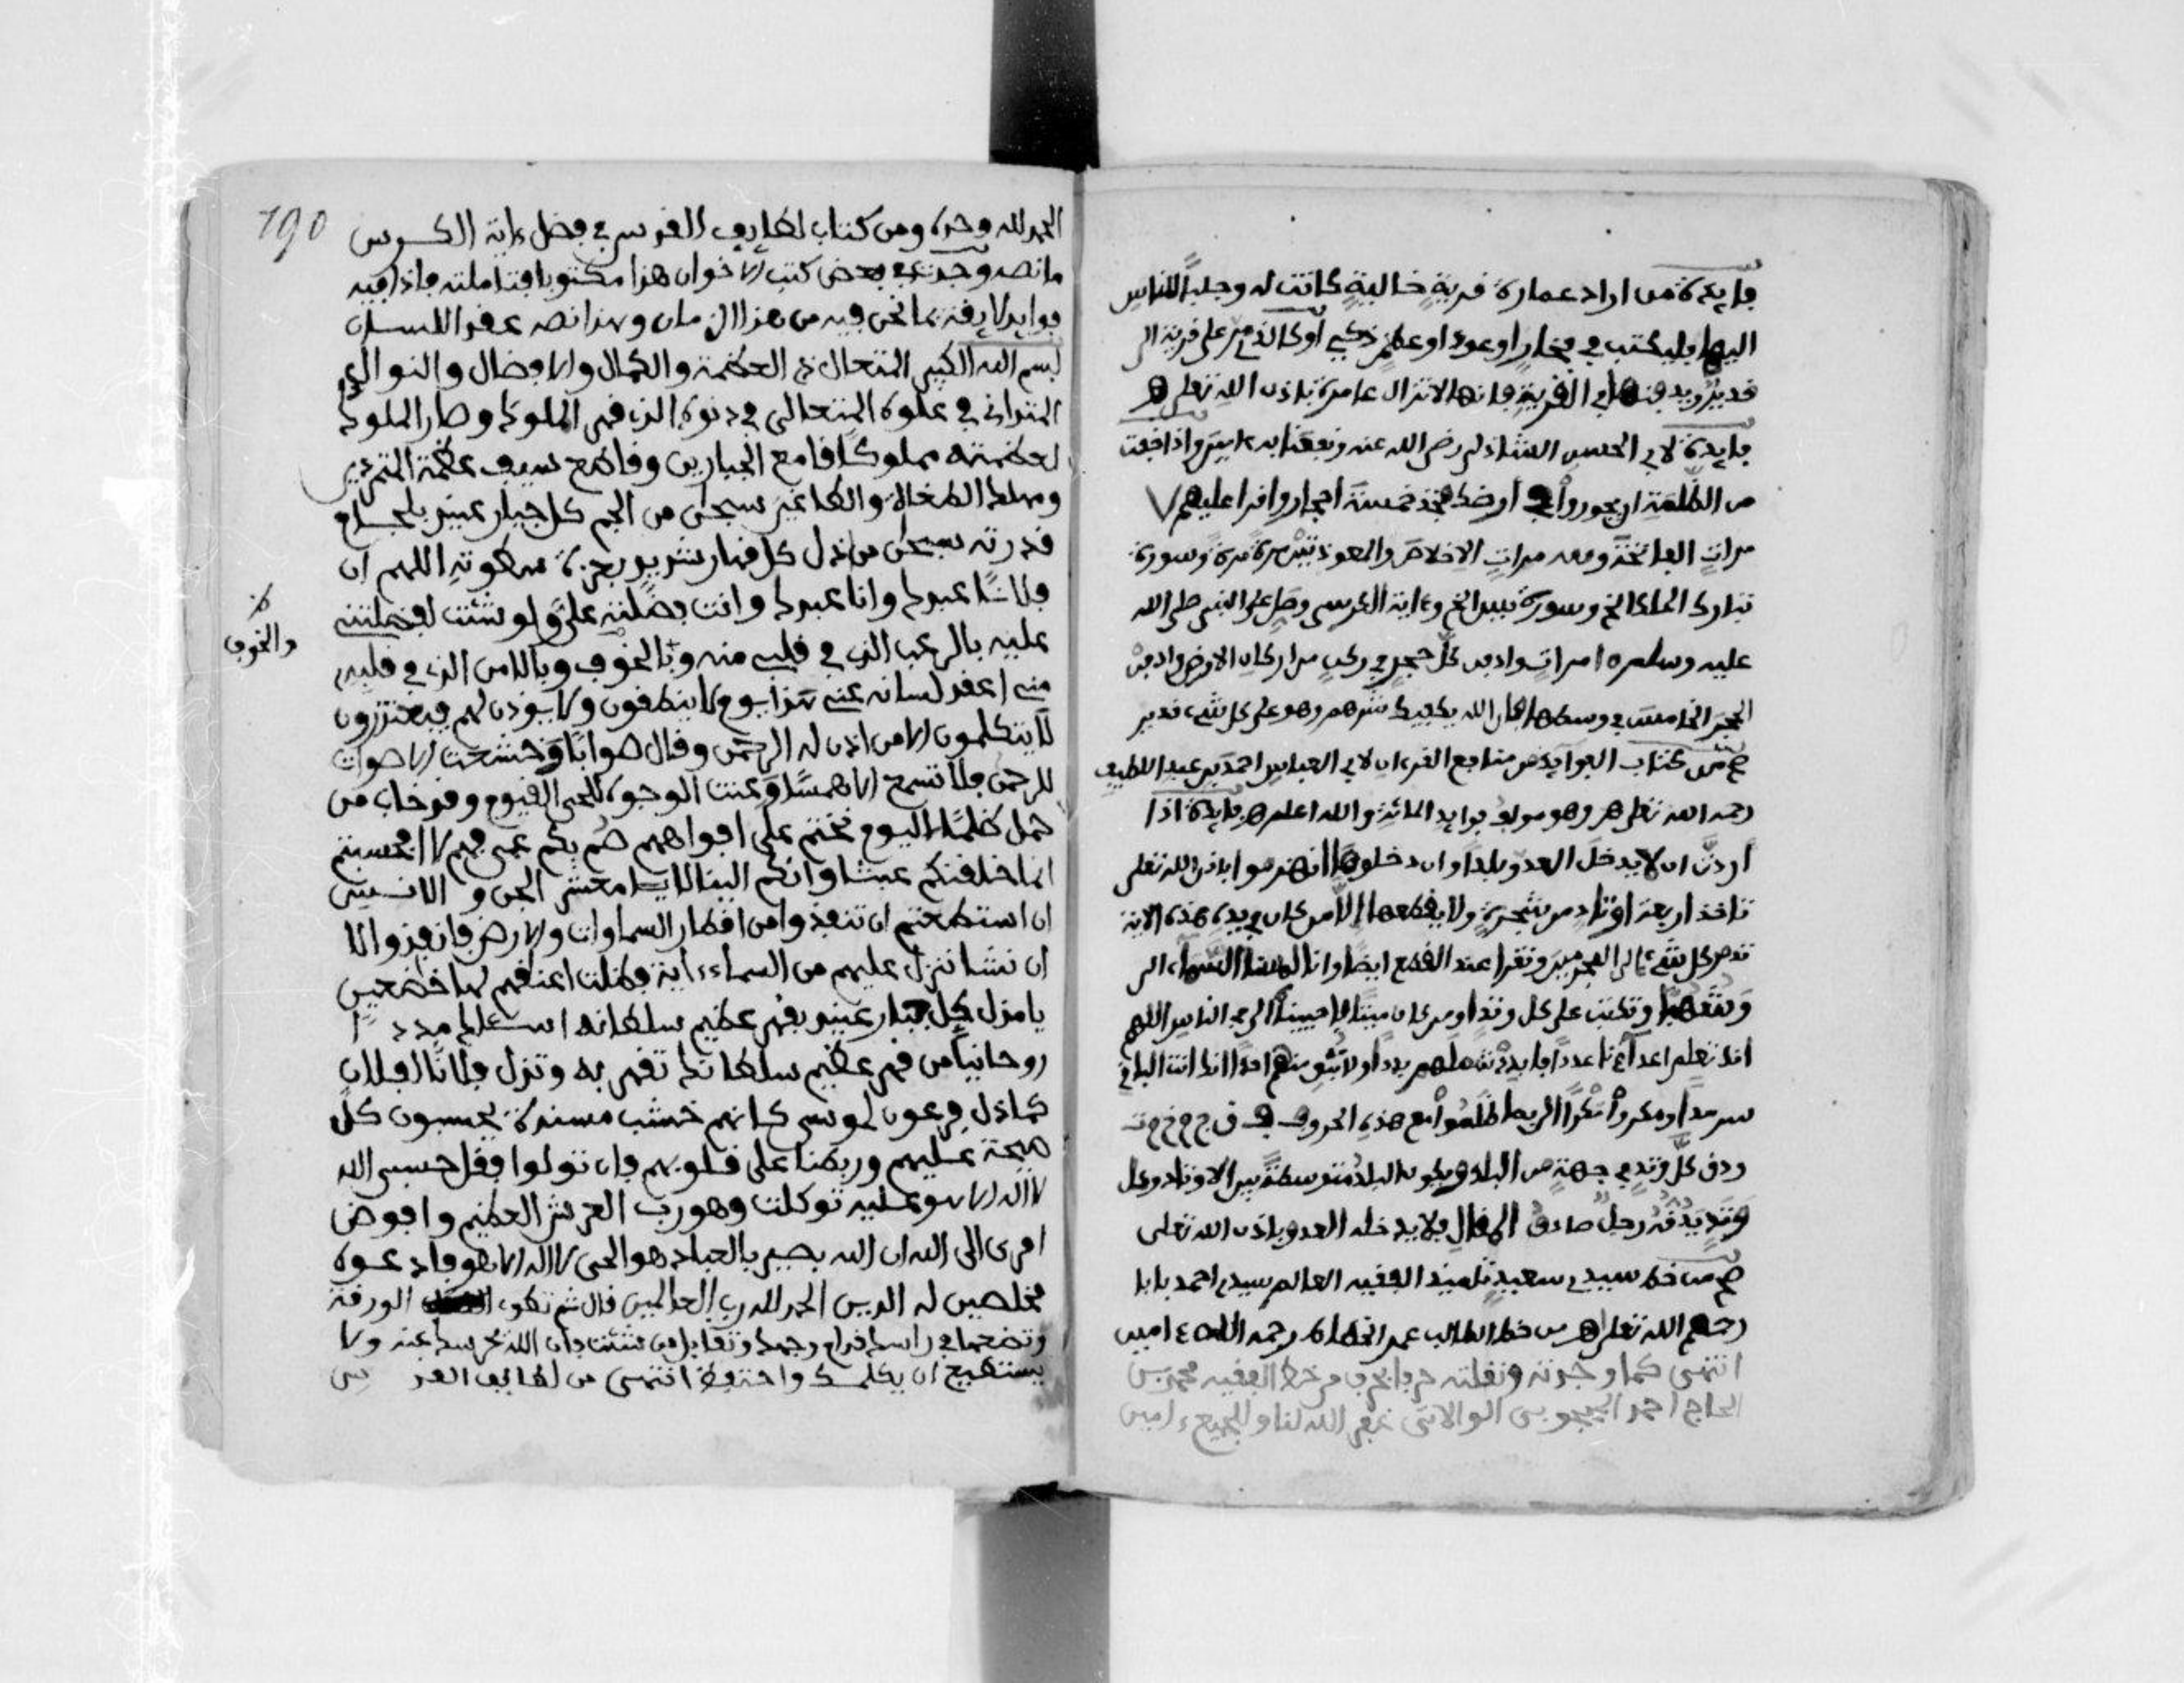 فايدة من اراد عمارة قرية خالية كانت له وجلبا للناس
اليها فليكتب في فخار او عود او عظم ذكي أو كالذي مر على قرية الى
قدير ويدفنها في القرية فانها لا تزال عامرة باذن الله تعلى هـ
فايدة لابي الحسن الشاذلي رضى الله عنه ونفعنا به ءامين واذا خفت
من الظلمة ان يجوروا في أرضك فخذ خمسة أحجار واقرا عليهم ٧
مرات الفاتحة ومعه مرات الاخلاص والمعوذتين مرة مرة وسورة
تبارك الملك الخ وسورة يس الخ وءاية الكرسي وصل على النبي صلى الله
عليه وسلم ١٥ مرات وادفن كل حجر في ركن من اركان الارض وادفن
الحجر الخامس في وسطها فان الله يكفيك شرهم وهو على كل شيء قدير
صح من كتاب الفوايد من منافع القرءان لابي العباس احمد بن عبد اللطيف
رحمه الله تعلى هـ وهو مولف فوايد المائة والله اعلم هـ فايدة اذا
أردت ان لا يدخل العدو بلدا وان دخلوها انهزموا باذن الله تعلى
تاخذ اربعة اوتاد من شجرة ولا يقطعها الا من كان في يده هذه الاية
تدمر كل شيء الى المجرمين وتقرا عند القطع ايضا وانا لمسنا السماء الى
وشهبا وتكتب على كل وتد او من كان ميتا فاحييناه الى في الناس اللهم
انك تعلم اعداءنا عددا فابددْ شملهم بددا ولا تبق منهم احدا انك انت الباقي
سرمدا ومكروا مكرا الى بما ظلموا مع هذه الحروف ف ق ج م خ م ت
ودق كل وتد في جهة من البلد ويكون البلد متوسطة بين الاوتاد وكل
وتد يدقه رجل صادق المقال فلا يدخله العدو باذن الله تعلى
صح من خط سيدي سعيد تلميذ الفقيه العالم سيدي احمد بابا
رحمهم الله تعلى اهـ من خط الطالب عمر الخطاط رحمه الله ءامين
انتهى كما وجدته ونقلته حرفا بحرف من خط الفقيه محمد بن
الحاج احمد الولاتي غفر الله لنا وللجميع ءامين
190
الحمد لله وحده ومن كتاب لطايف القدس في فضل ءاية الكرسي
ما نصه وجدت في بعض كتب الاخوان هذا مكتوبا فتاملته فاذا فيه
فوايد لايقة بما نحن فيه من هذا الزمان وهذا نصه عقد اللسان
بسم الله الكبير المتعال ذي العظمة والكمال والافضال والنوال
المتداني في علوه المتعالي في دنوه الذي قهر الملوك وصار الملوك
لعظمته مملوكا قامع الجبارين وقاطع بسيف عظمة المتمردين
ومهلك الطغاة والطاغين سبحن من الجم كل جبار عنيد بلجام
قدرته سبحن من اذل كل قهار شديد بعزة ملكوته اللهم ان
فلانا عبدك وانا عبدك وانت فضلته علي ولو شئت لفضلتني
عليه بالرعب الذي في قلبي منه وبالخوف وبالامن الذي في قلبه
والخوف
مني اعقد لسانه عني هذا يوم لا ينطقون ولا يوذن لهم فيعتذرون
لا يتكلمون الا من اذن له الرحمن وقال صوابا وخشعت الاصوات
للرحمن فلا تسمع الا همسا وعنت الوجوه للحي القيوم وقد خاب من
حمل ظلما اليوم نختم على افواههم صم بكم عمي فهم لا افحسبتم
انما خلقنكم عبثا وانكم الينا لا يا معشر الجن والانس
ان استطعتم ان تنفذوا من اقطار السماوات والارض فانفذوا لا
ان نشا ننزل عليهم من السماء ءاية فظلت اعنقهم لها خضعين
يا مزل كل جبار عنيد بقهر عظيم سلطانه اسئلك مددا
روحانيا من قهر عظيم سلطانك تقهر به وتزل فلانا الفلان
كما ذل فرعون لموسى كانهم خشب مسندة يحسبون كل
صيحة عليهم وربطنا على قلوبهم فان تولوا فقل حسبي الله
لا اله الا هو عليه توكلت وهو رب العرش العظيم وافوض
امرى الى الله ان الله بصير بالعباد هو الحي لا اله الا هو فادعوه
مخلصين له الدين الحمد لله رب العالمين قال ثم تكوى الورقة
وتضعها في راسك قدام وجهك وتقابل من شئت فان الله يخرسه عنه ولا
يستطيع ان يكلمك واحتفظ انتهى من لطايف القدس